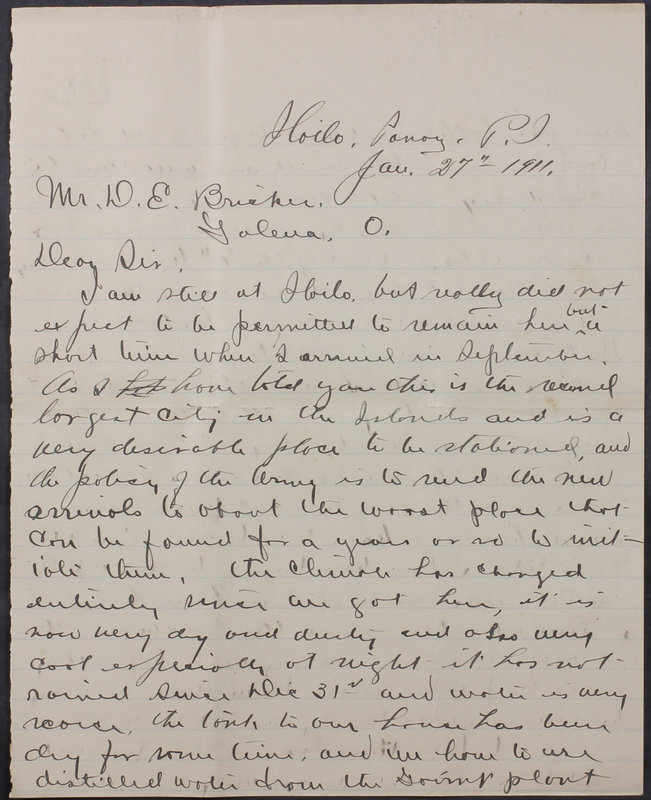 Iloilo, Panay, P.I.
Jan. 27" 1911.
Mr. D. E. Bricker.
Galena, O.
Dear Sir,
I am still at Iloilo, but really did not
expect to be permitted to remain here but a
short time when I arrived in September.
As I have told you this is the second
largest City in the Islands and is a
very desirable place to be stationed, and
the policy of the Army is to send the new
arrivals to about the worst place that
can be found for a years or so to init-
iate them, the climate has changed
entirely since we got here, it is
now very dry and dusty and also very
cool especially at night it has not
rained since Dec 31st and water is very
scarce, the tank to our house has been
dry for some time, and we have to use
distilled water from the Govmt plant